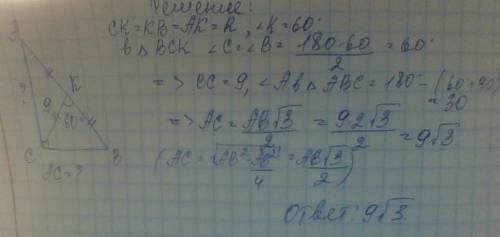 Решение:
CK=KB=AK=R, ∠K=60°
В △BCK ∠C=∠B= 180-60 / 2 =60°
=> BC=9, ∠A в △ABC=180°-(60+90)
=30
=> AC= AB√3 / 2 = 9·2√3 / 2 =9√3
(AC=√AB²-AB²/4 = AB√3 / 2)
Ответ: 9√3
A
?
9
K
60°
C
B
AC=?